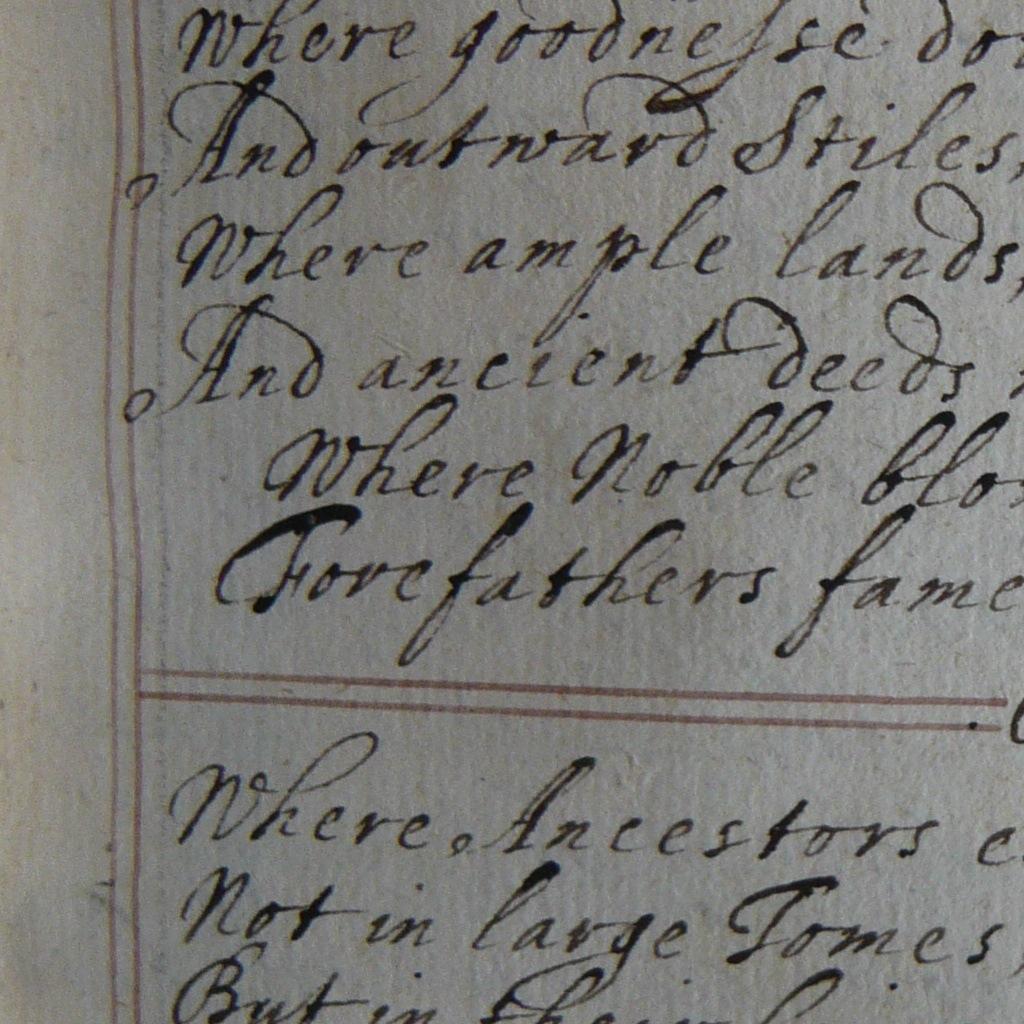 Where goodnesse do
And outward Stiles,
Where ample lands,
And ancient deeds
Where Noble blo
Forefathers fame
Where Ancestors
Not in large Tomes,
But in their